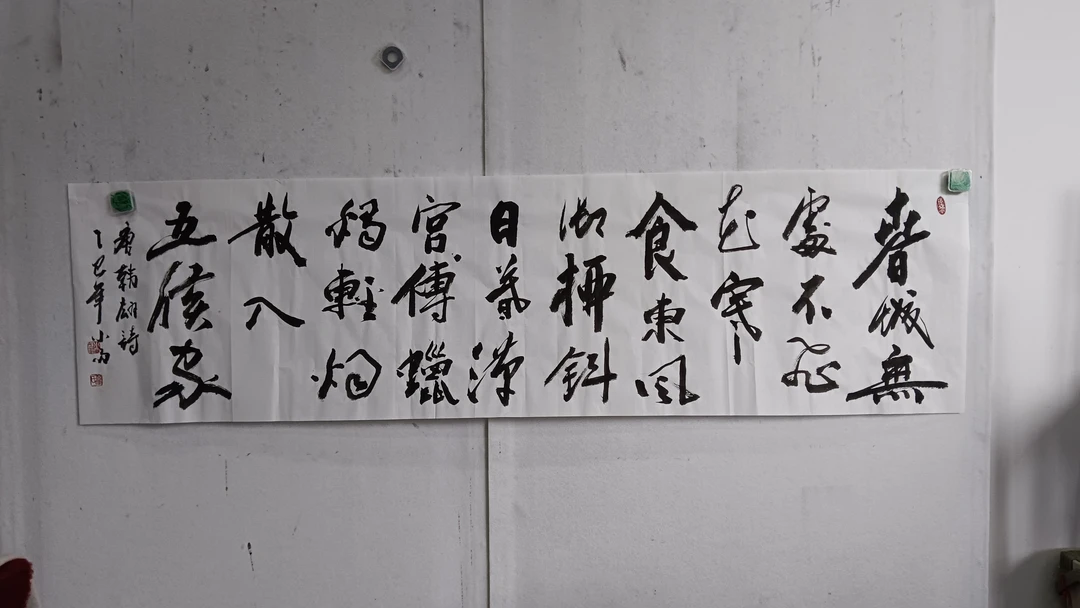 春城無
處不飛
花寒
食東風
御柳斜
日暮漢
宫傳蠟
燭輕烟
散入
五侯家
唐韓翃詩
乙巳年